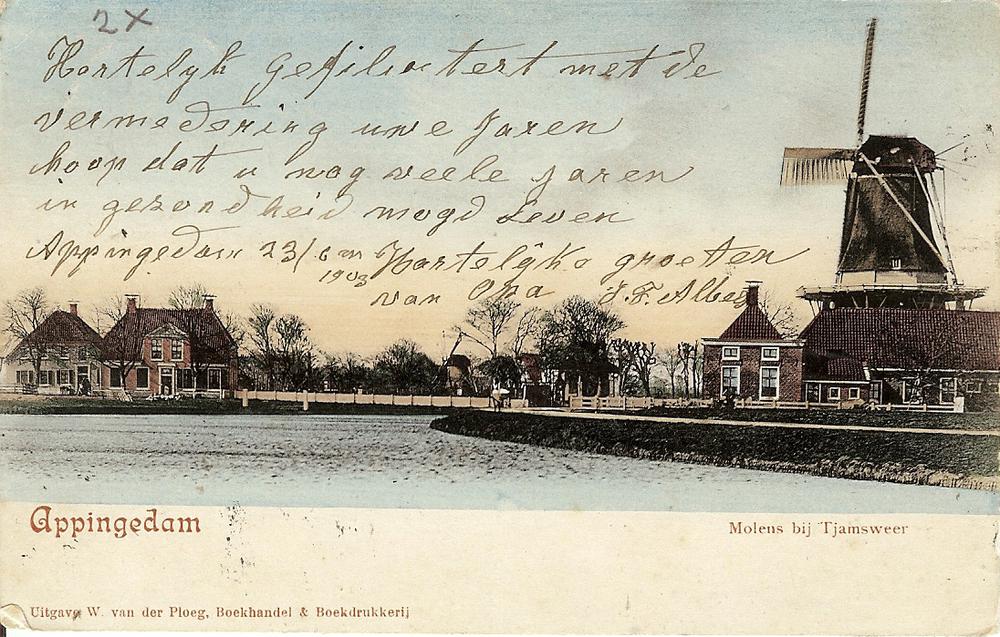 2x
Hartelyk gefilicitert met de
vermedering uwe Jaren
hoop dat u nog veele Jaren
in gezondheid mogd Leven
Appingedam 23/6 m Hartelijke groeten
1903 van Opa J. F. Albes
Appingedam
Molens bij Tjamsweer
Uitgave W. van der Ploeg, Boekhandel & Boekdrukkerij